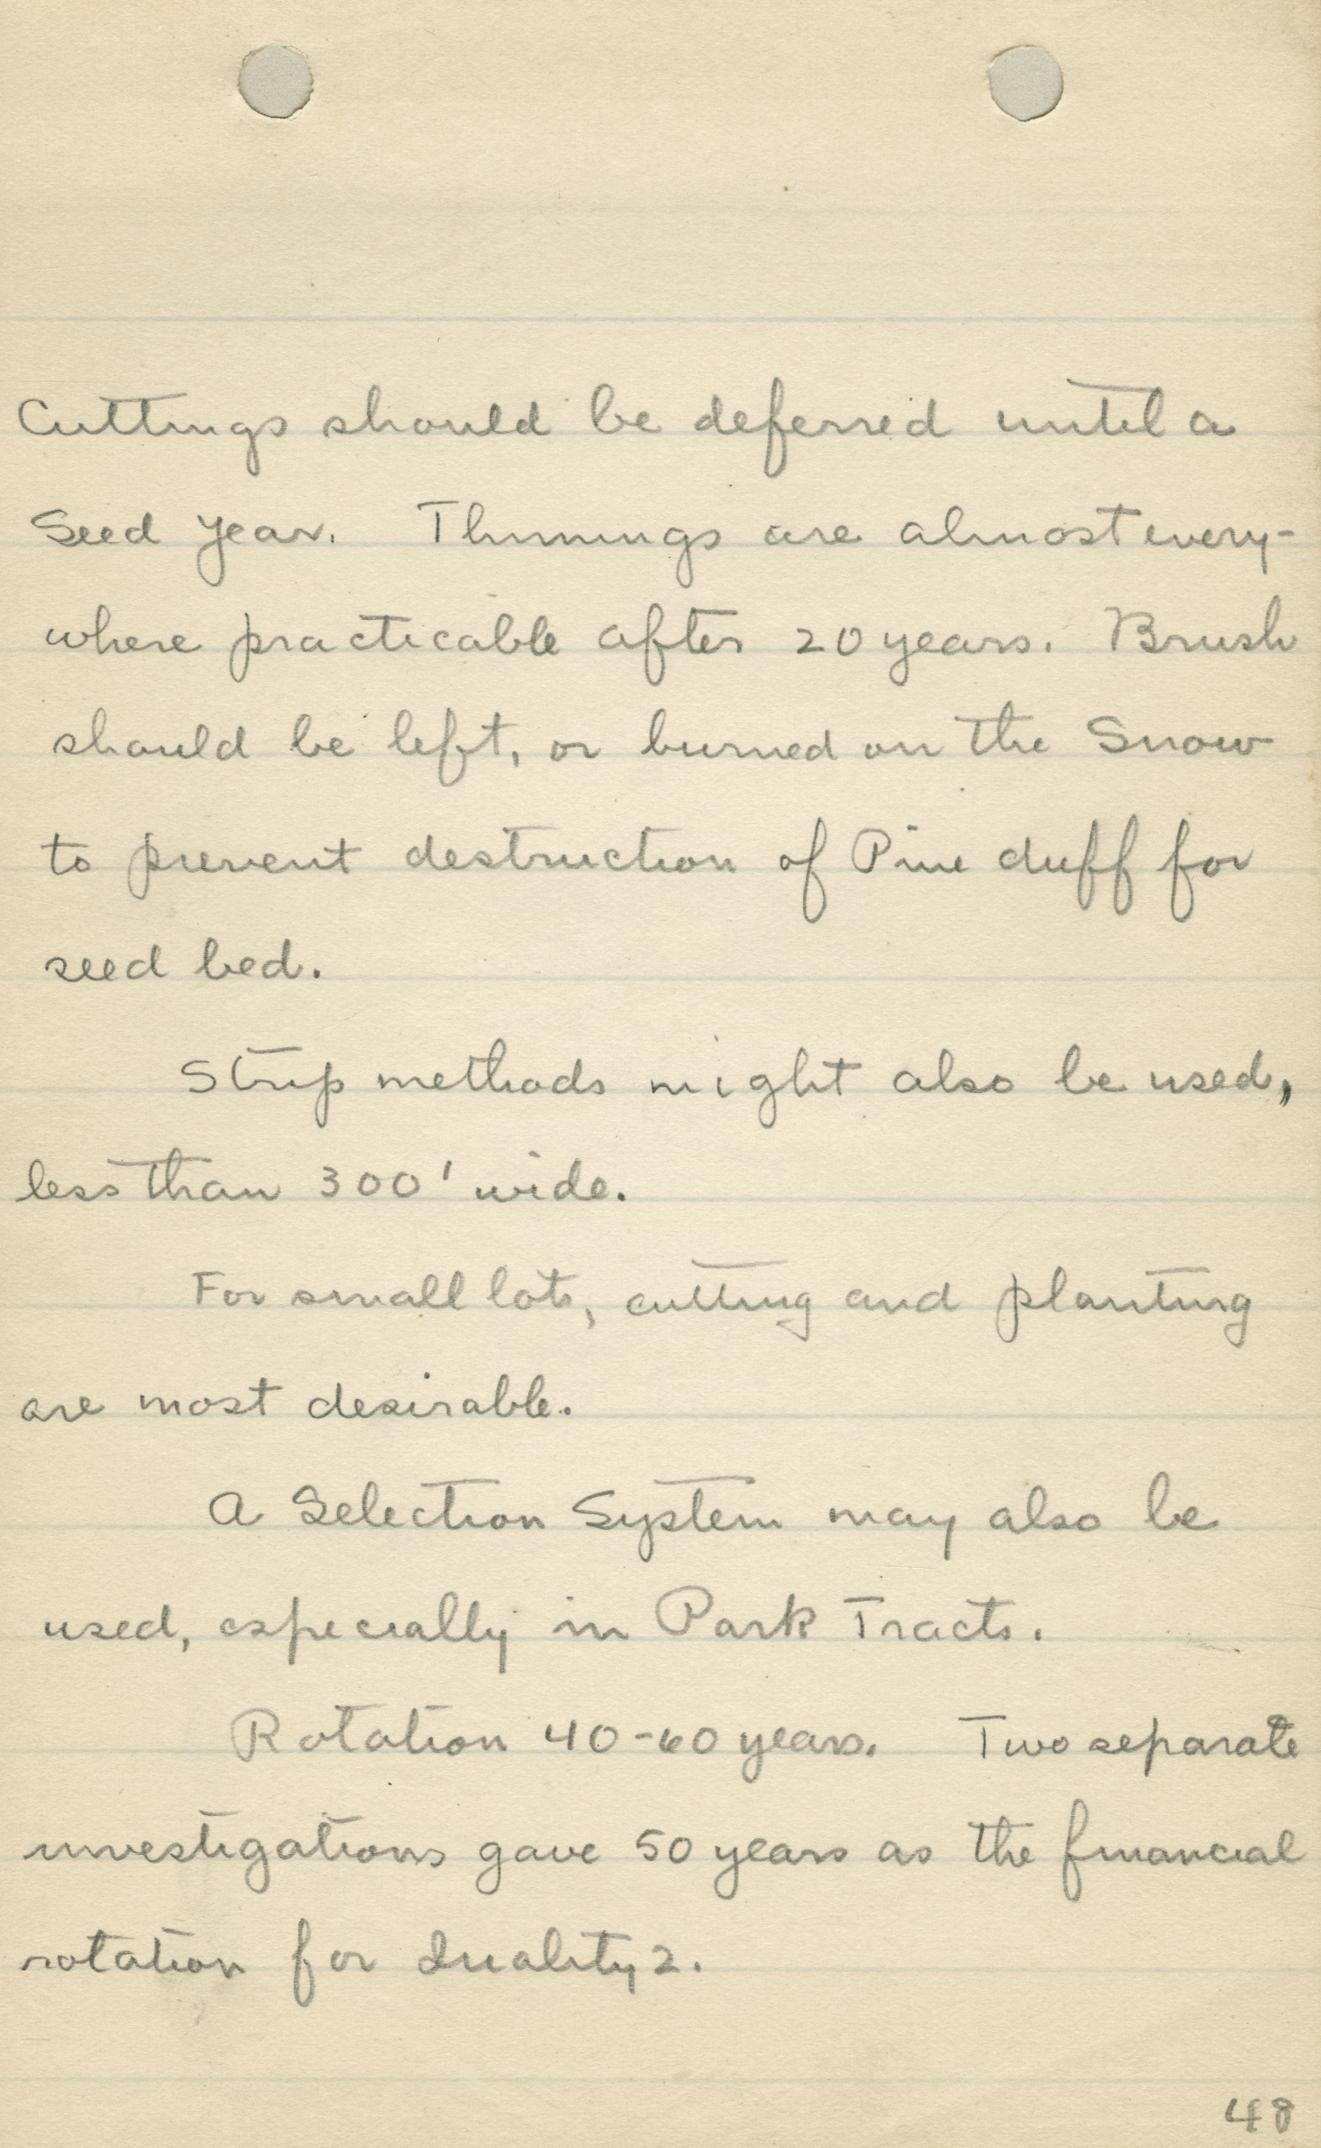 Cuttings should be deferred until a
Seed year. Thinnings are almost every-
where practicable after 20 years. Brush
should be left, or burned on the Snow
to prevent destruction of Pine duff for
seed bed.
Strip methods might also be used,
less than 300' wide.
For small lots, cutting and planting
are most desirable.
A Selection System may also be
used, especially in Park Tracts.
Rotation 40-60 years. Two separate
investigations gave 50 years as the financial
rotation for Quality 2.
48